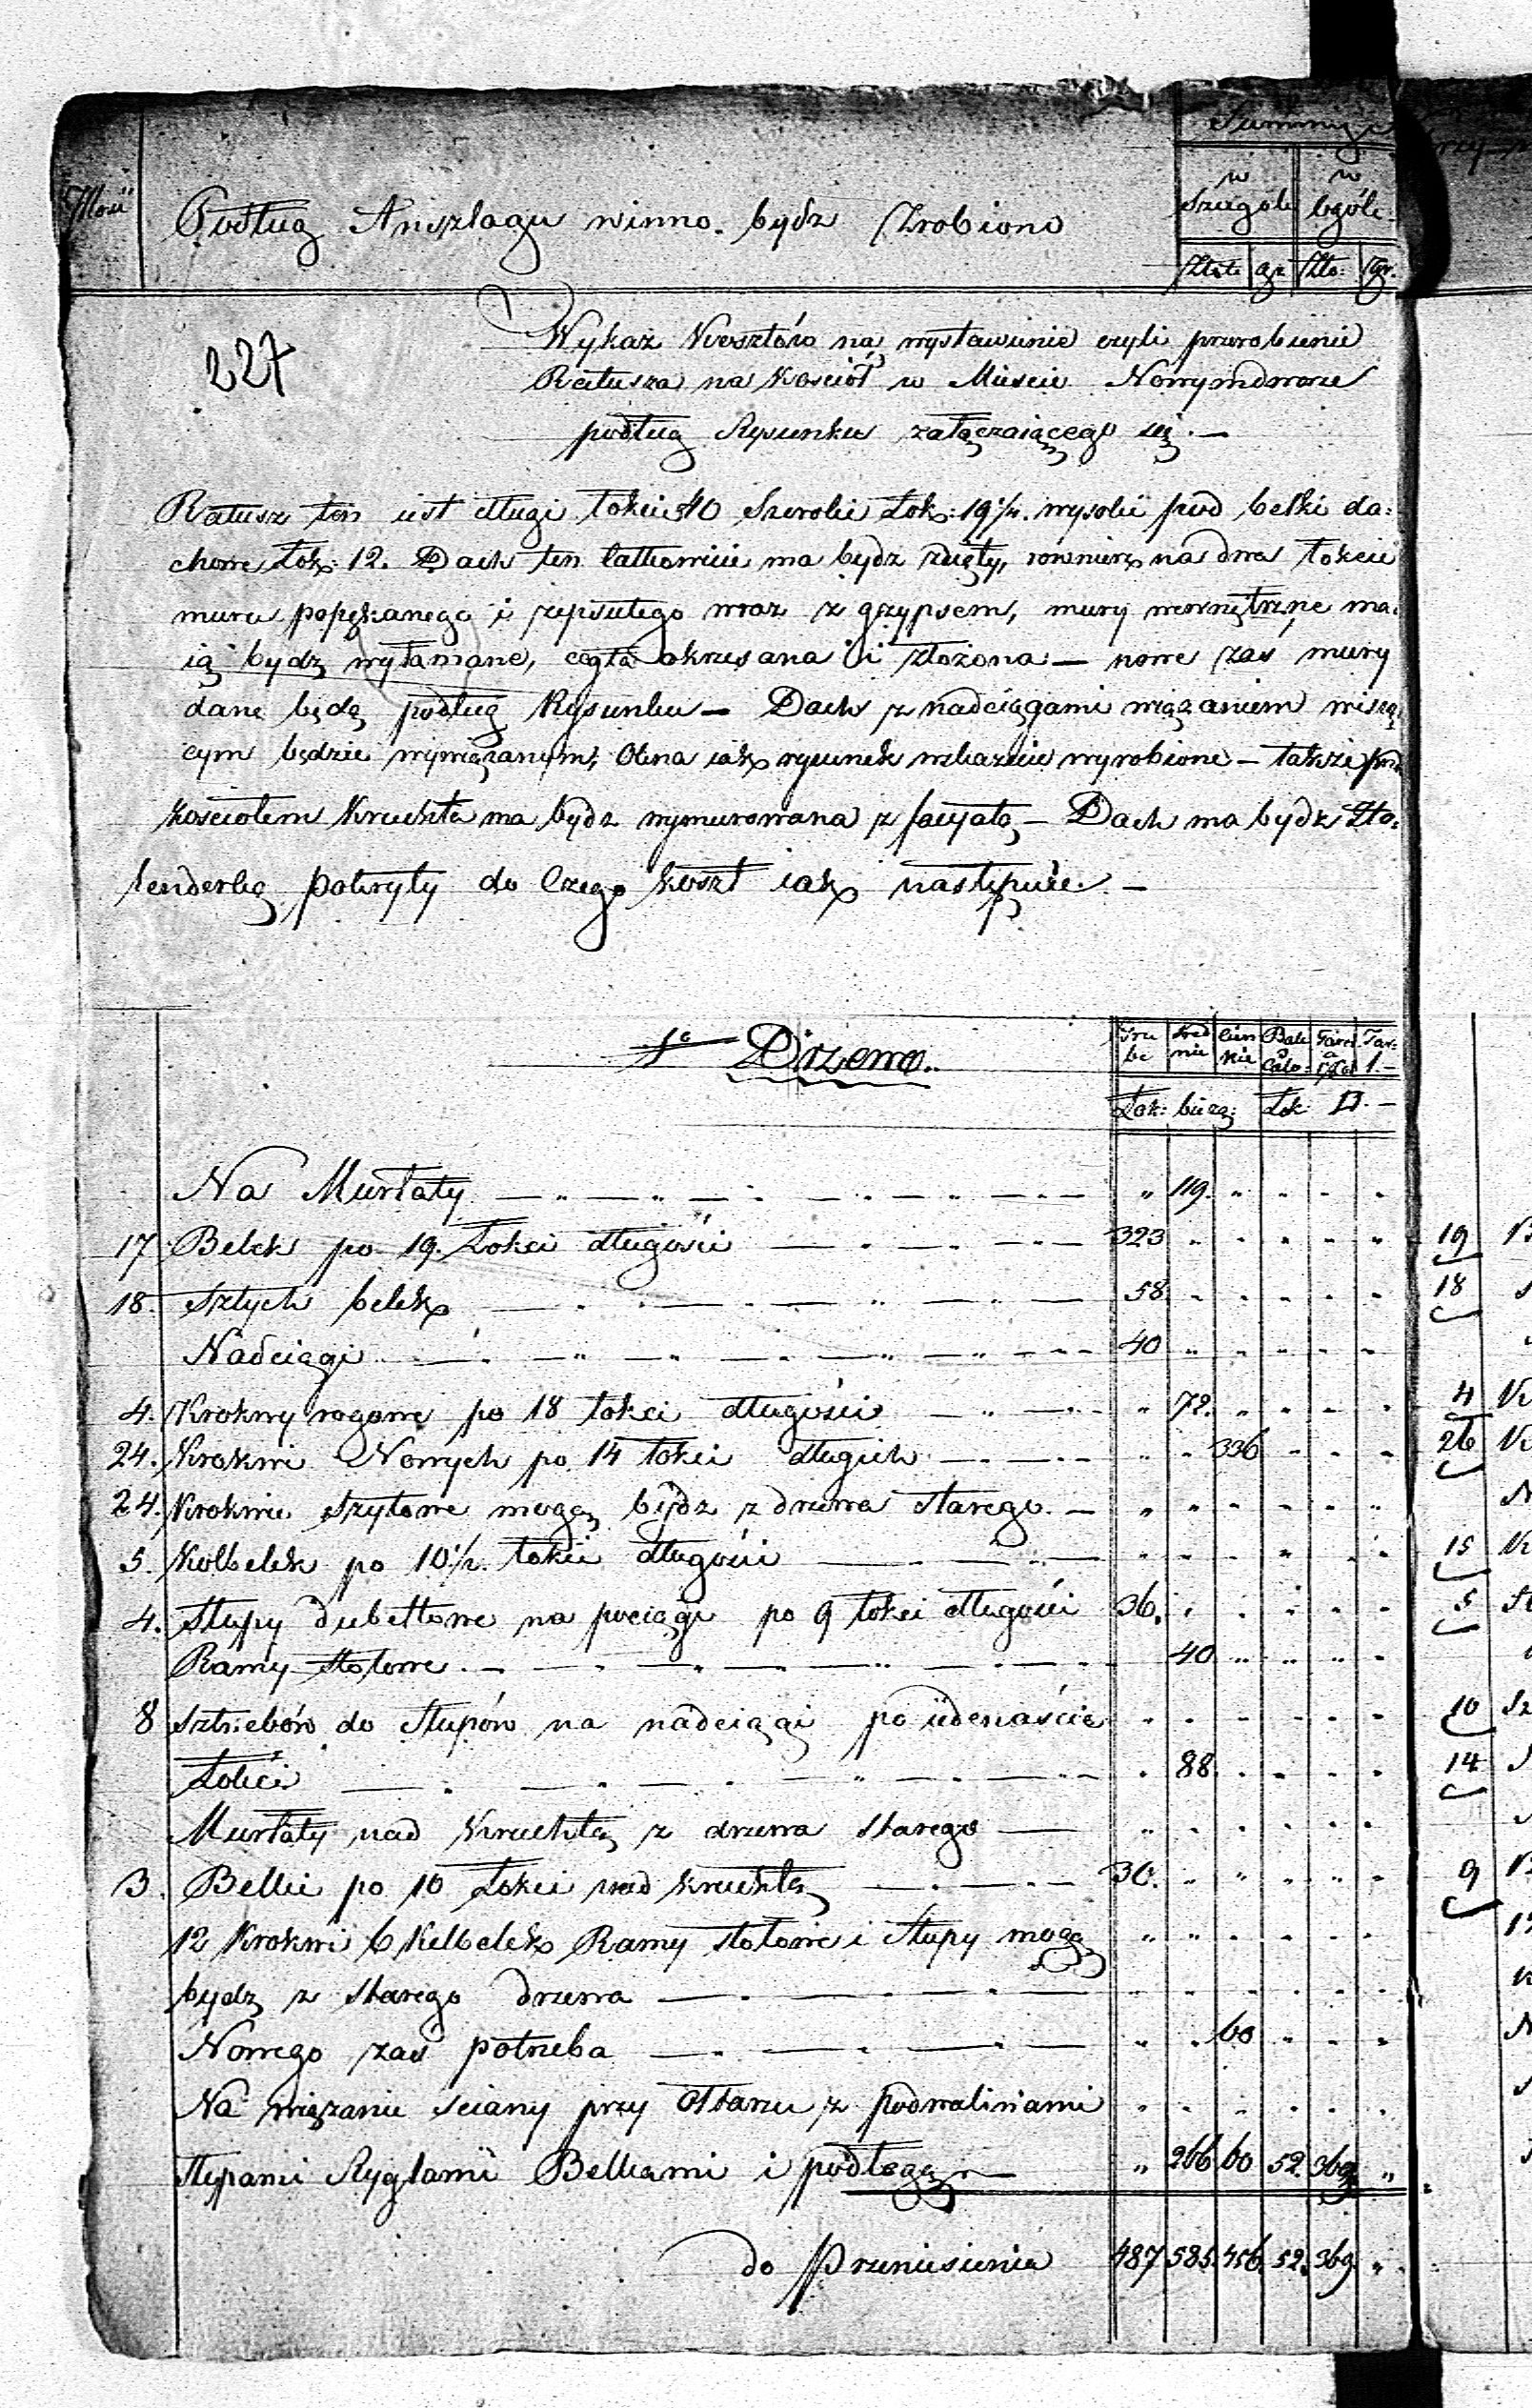 Ilość
Podług Anszlagu winno bydz Zrobiono
Summy
w
w
Szczególe
Ogóle
Złote gr Zło: gr.
227
Wykaz Kosztów na wystawienie czyli przerobienie
Ratusza na Kosciół w Miescie Nowymdworze
podług Rysunku załączaiącego się. —
Ratusz ten iest długi łokci 40 Szeroki Łok: 19½. wysoki pod belki da=
chowe Łok: 12. Dach ten całkowicie ma bydz zdięty, rownierz na dwa łokcie
muru popękanego i zepsutego wraz z gzypsem, mury wewnętrzne ma=
ią bydz wyłamane, cegła okrzesana i złożona — nowe zaś mury
dane będą podług Rysunku — Dach z nadciągami wiązaniem wiszą=
cym będzie wywiązanym, Okna iak rysunek wskazuie wyrobione — także
kosciołem Kruchta ma bydz wymurowana z facyatą — Dach ma bydz Ho=
lenderką pokryty do Czego koszt iak następuie. —
1º Drzewo.
Gru be
Sred nie
Cien kie
Bale Calo:
Tarci a 1½ cal
Tar: 1. —
Łok: bieżą: Łok: □. —
Na Murłaty — " 119. " " " "
17 Belek po 19. Łokci długości — 323 " " " " "
18. Sztych belek — 58 " " " " "
Nadciągi — 40 " " " " "
4. Krokwy rogowe po 18 łokci długości — " 72. " " " "
24. Krokwi Nowych po 14 łokci długich — " " 336 " " "
24. Krokwie szytowe mogą bydz z drzewa starego. — " " " " " "
5. Kolbelek po 10½. łokci długości — " " " " " "
4. Słupy dubeltowe na pociągi po 9 łokci długości 36. " " " " "
Ramy stołowe. — 40 " " " "
8 Sztrebów do Słupów na nadciągi po iedenaście " " " " " "
Łokci — " 88. " " " "
Murłaty nad Kruchtą z drzewa starego — " " " " " "
3. Belki po 10 Łokci nad kruchtą — 30. " " " " "
12 Krokwi 6 Kelbelek Ramy stołowe i Słupy mogą " " " " " "
bydz z starego drzewa — " " " " " "
Nowego zaś potrzeba — " " 60 " " "
Na wiązanie sciany przy Ołtarzu z podwalinami " " " " " "
słupami Ryglami Belkami i podłogą — " 266 60 52 369 "
do Przeniesienia 487 585. 456. 52. 369 "
19
18
4
26
15
5
10
14
9